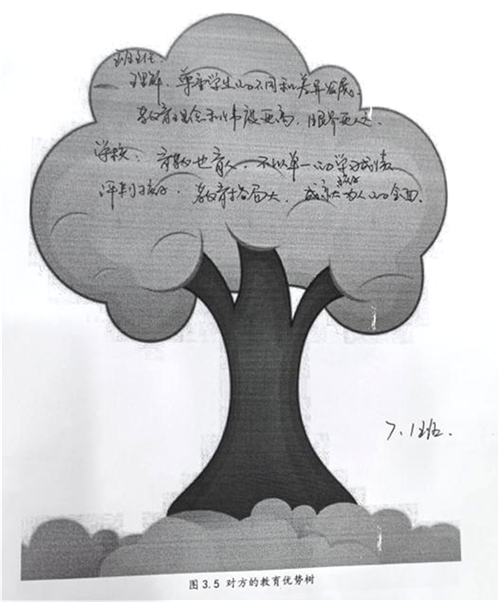 班主任:
理解、尊重学生的不同和差异发展。
教育理念和角度更高,眼界更人
学校:育物也育人,不以单一的学习成绩
评判孩子,教育格局大,孩子为人的全面.
7.1班.
图 3.5 对方的教育优势树